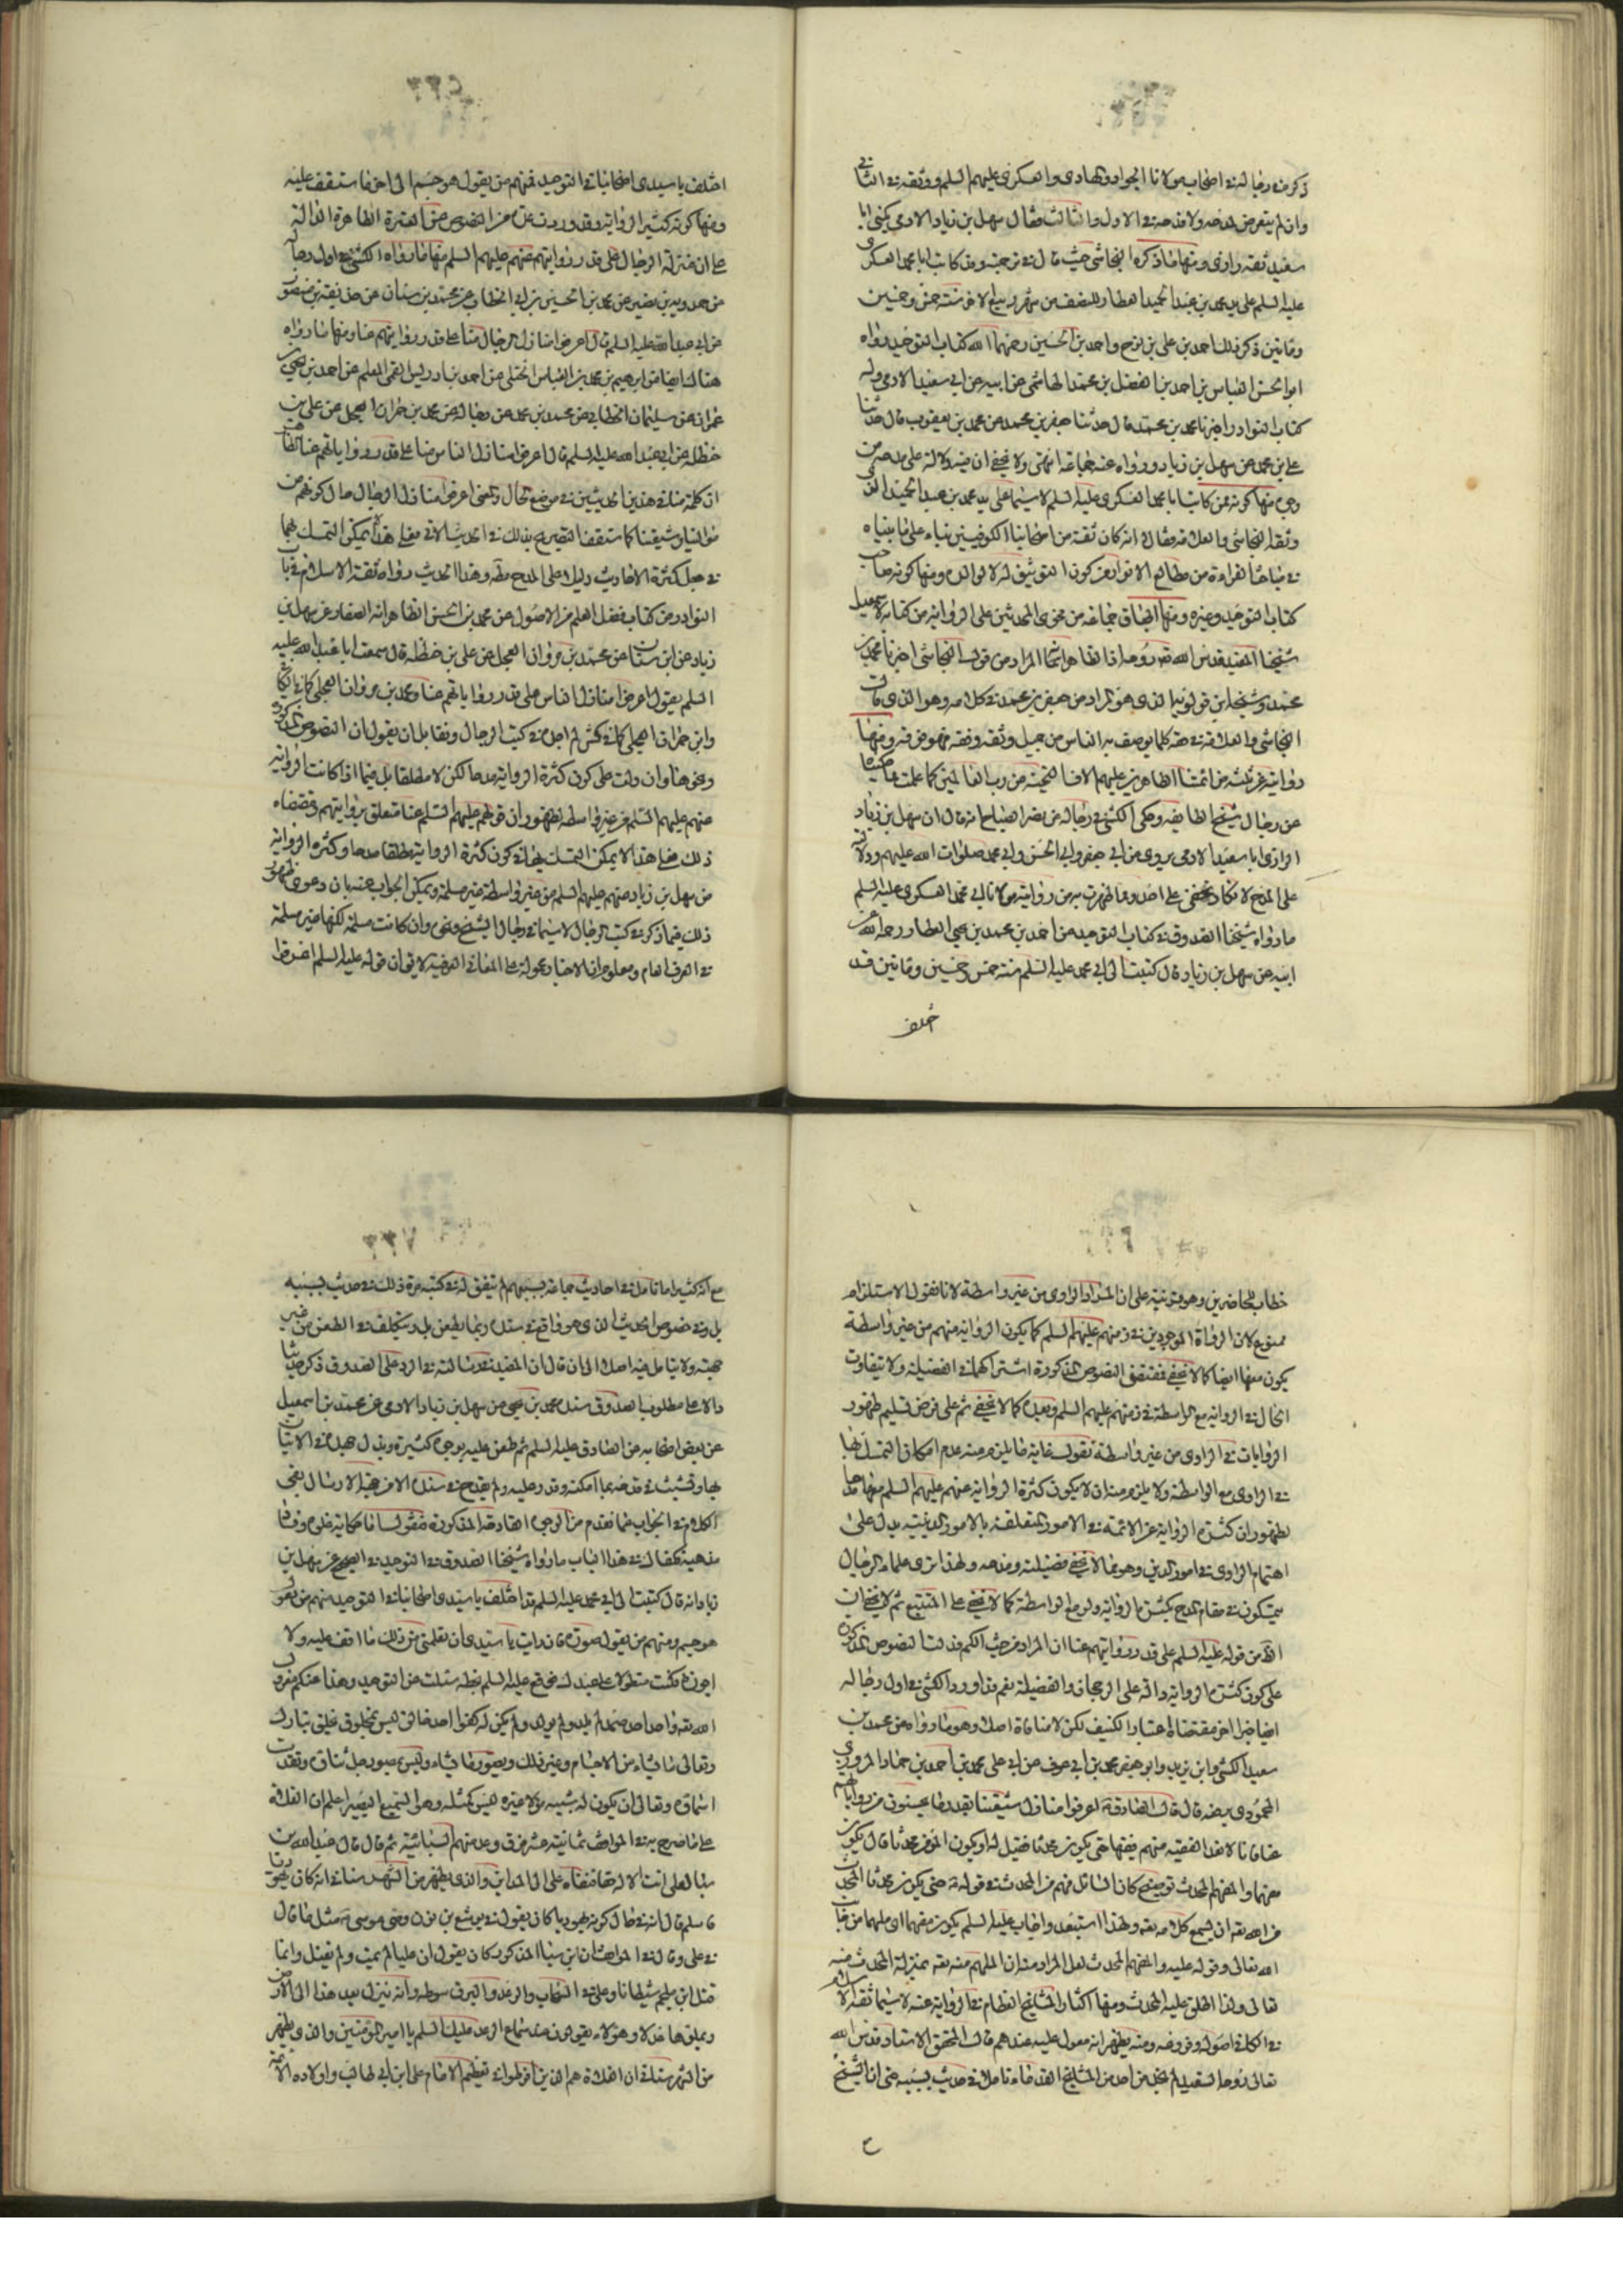 ذكره في رجاله في اصحاب مولانا الجواد والهادى والعسكرى عليهم السلم ووثقه في الثاني
وان لم يتعرض لمدحه ولا قدحه في الاول والثالث فقال سهل بن زياد الادمى يكنى ابا
سعيد ثقه رازى ومنها ما ذكره النجاشى حيث قال في ترجمته وقد كاتب ابا محمد العسكرى
عليه السلم على يد محمد بن عبد الحميد العطار للنصف من شهر ربيع الاخر سنة خمس وخمسين
ومأتين ذكر ذلك احمد بن على بن نوح واحمد بن الحسين رحمهما الله له كتاب التوحيد رواه
ابو الحسن العباس بن احمد بن الفضل بن محمد الهاشمى عن ابيه عن ابى سعيد الادمى وله
كتاب النوادر اخبرناه محمد بن محمد قال حدثنا جعفر بن محمد عن محمد بن يعقوب قال حدثنا
على بن محمد عن سهل بن زياد ورواه عنه جماعة انتهى ولا يخفى ان فيه دلالة على مدحه من
وجوه منها كونه ممن كاتب ابا محمد العسكرى عليه السلم لا سيما على يد محمد بن عبد الحميد الذى
وثقه النجاشى والعلامة فقالا انه كان ثقة من اصحابنا الكوفيين بناء على ما بيناه
في مباحث القراءة من مطالع الانوار من كون التوثيق له لا لوالده ومنها كونه صاحب
كتاب التوحيد وغيره ومنها اطباق جماعة من فحول المحدثين على الرواية من كتابه لا سيما مثل
شيخنا المفيد قدس الله تعالى روحه اذ الظاهر انه المراد من قول النجاشى اخبرناه محمد بن
محمد وشيخه ابن قولويه الذى هو المراد من جعفر بن محمد في كلامه وهو الذى قال
النجاشى والعلامة في حقه كلما يوصف به الناس من جميل وثقة وفقه فهو فوقه ومنها
روايته عن ثلثة من ائمتنا الطاهرين عليهم الاف التحية من رب العالمين كما علمت
من رجال شيخ الطايفة وحكى الكشى في رجاله عن نصر الصباح انه قال ان سهل بن زياد
الرازى ابا سعيد الادمى يروى عن ابى جعفر وابى الحسن وابى محمد صلوات الله عليهم ودلالته
على المدح لا تكاد تخفى على احد ومما ظهرت به من روايته مولانا ابى محمد العسكرى عليه السلم
ما رواه شيخنا الصدوق في كتاب التوحيد عن احمد بن محمد بن يحيى العطار رحمه الله عن
ابيه عن سهل بن زياد قال كتبت الى ابى محمد عليه السلم سنة خمس وخمسين ومأتين قد
اختلف
اختلف يا سيدى اصحابنا في التوحيد فمنهم من يقول هو جسم الى اخر ما ستقف عليه
ومنها كونه كثير الرواية وقد وردت عدة من النصوص عن العترة الطاهرة الدالة
على ان منزلة الرجال على قدر روايتهم عنهم عليهم السلم منها ما رواه الكشى في اول رجاله
عن حمدويه بن نصير عن محمد بن الحسين بن ابى الخطاب عن محمد بن سنان عن حذيفة بن منصور
عن ابى عبد الله عليه السلم قال اعرفوا منازل الرجال منا على قدر رواياتهم عنا ومنها ما رواه
هناك ايضا عن ابرهيم بن محمد بن العباس الختلى عن احمد بن ادريس القمى المعلم عن احمد بن يحيى بن
عمران عن سليمان الخطابى عن محمد بن محمد عن رجاله عن محمد بن حمران العجلى عن على بن
حنظله عن ابى عبد الله عليه السلم قال اعرفوا منازل الناس منا على قدر رواياتهم عنا
ان كلمة منا في هذين الحديثين في موضع الحال والمعنى اعرفوا منازل الرجال حال كونهم من
موالينا وشيعتنا كما ستقف التصريح بذلك في الحديث الاتى فعلى هذا يمكن التمسك بهما
في جعل كثرة الاحاديث دليلا على المدح مطلقا وهذا الحديث رواه ثقة الاسلام في باب
النوادر من كتاب فضل العلم من الاصول عن محمد بن الحسن الظاهر انه الصفار عن سهل بن
زياد عن ابن سنان عن محمد بن مروان العجلى عن على بن حنظلة قال سمعت ابا عبد الله عليه
السلم يقول اعرفوا منازل الناس على قدر رواياتهم عنا ومحمد بن مروان العجلى كما في الكافى
وابن حمران العجلى كما في كش لم اجده في كتب الرجال ولقائل ان يقول ان النصوص المذكورة
ونحوها وان دلت على كون كثرة الرواية مدحا لكن لا مطلقا بل فيما اذا كانت الرواية
عنهم عليهم السلم من غير واسطة لظهور ان قولهم عليهم السلم عنا متعلق بروايتهم ومقتضاه
ذلك فعلى هذا لا يمكن التمسك بها في كون كثرة الرواية مطلقا مدحا وكثرة الرواية
من سهل بن زياد عنهم عليهم السلم من غير واسطة غير مسلمة ويمكن الجواب عنه بان دعوى ظهور
ذلك فيما ذكر في كتب الرجال لا سيما في رجال الشيخ وغيره وان كانت مسلمة لكنها غير مسلمة
في العرف العام ومعلوم ان الاخبار محمولة على المعانى العرفية لا يقال ان قوله عليه السلم اعرفوا
خطاب للحاضرين وهو قرينة على ان المراد الراوى من غير واسطة لانا نقول الاستلزام
ممنوع لان الرواة الموجودين في زمنهم عليهم السلم كما يكون الرواية منهم من غير واسطة
يكون معها ايضا كما لا يخفى فمقتضى النصوص المذكورة اشتراكهما في الفضيلة ولا يتفاوت
الحال في الرواية مع الواسطة في زمنهم عليهم السلم وبعده كما لا يخفى ثم على فرض تسليم ظهور
الروايات في الراوى من غير واسطة نقول غاية ما يلزم منه عدم امكان التمسك بها
في الراوى مع الواسطة ولا يلزم منه ان لا يكون كثرة الرواية عنهم عليهم السلم معها مدحا
لظهور ان كثرة الرواية عن الائمة في الامور المتعلقة بالامور الدينية يدل على
اهتمام الراوى في امور الدين وهو مما لا يخفى فضيلته ومدحه ولهذا ترى علماء الرجال
يتمسكون في مقام المدح بكثرة الرواية ولو مع الواسطة كما لا يخفى على المتتبع ثم لا يخفى ان
الظ من قوله عليه السلم على قدر روايتهم عنا ان المراد من حيث الكم فدلت النصوص المذكورة
على كون كثرة الرواية دالة على الرجحان والفضيلة نعم قد اورد الكشى في اول رجاله
ايضا خبرا اخر مقتضاه اعتبار الكيف لكن لا منافاة اصلا وهو ما رواه عن محمد بن
سعيد الكشى وابن يزيد وابو جعفر محمد بن ابى عوف عن ابى على محمد بن احمد بن حماد المروزى
المحمودى يرفعه قال قال الصادق عليه السلم اعرفوا منازل شيعتنا بقدر ما يحسنون من رواياتهم
عنا فانا لا نعد الفقيه منهم فقيها حتى يكون محدثا فقيل له او يكون المؤمن محدثا قال يكون
مفهما والمفهم المحدث توضيحه كان السائل فهم من المحدث في قوله حتى يكون محدثا المحدث
من الله تعالى ان يسمع كلامه تعالى ولهذا استبعده واجاب عليه السلم يكون مفهما اى ملهما من جانب
الله تعالى وقوله عليه والمفهم المحدث لعل المراد منه ان الملهم منه تعالى بمنزلة المحدث منه
تعالى ولذا اطلق عليه المحدث ومنها اكثار المشايخ العظام في الرواية عنه لا سيما ثقة الاسلام
في الكافى اصوله وفروعه ومنه يظهر انه معول عليه عندهم قال المحقق الاستاد قدس الله
تعالى روحه السعيد لم نجد من احد من المشايخ القدماء تاملا في حديث بسببه حتى ان الشيخ
مع انه كثيرا ما تامل في احاديث جماعة بسببهم لم يتفق له في كتبه مرة ذلك في حديث بسببه
بل وفي خصوص الحديث الذى هو واقع في سنده ربما يطعن بل ويتكلف في الطعن من غير
جهته ولا يتامل فيه اصلا الى ان قال ان المفيد في رسالته في الرد على الصدوق ذكر حديثا
دالا على مطلوب الصدوق سنده محمد بن يحيى عن سهل بن زياد الادمى عن محمد بن اسمعيل
عن بعض اصحابه عن الصادق عليه السلم ثم طعن عليه بوجوه كثيرة وبذل جهده في الاتيان
بها وتشبث في قدحه بما امكنه وقدر عليه ولم يقدح في سنده الا من جهة الارسال بقى
الكلام في الجواب عما تقدم من الوجوه القادحة المذكورة فنقول اما حكاية غلوه وفساد
مذهبه فيكفى في هذا الباب ما رواه شيخنا الصدوق في التوحيد في الصحيح عن سهل بن
زياد انه قال كتبت الى ابى محمد عليه السلم قد اختلف يا سيدى اصحابنا في التوحيد منهم من يقول
هو جسم ومنهم من يقول هو صورة فان رايت يا سيدى ان تعلمنى من ذلك ما اقف عليه ولا
اجوزه فعلت متطولا على عبدك فوقع عليه السلم بخطه سئلت عن التوحيد وهذا عنكم معزول
الله تعالى واحد احد صمد لم يلد ولم يولد ولم يكن له كفوا احد خالق ليس بمخلوق يخلق تبارك
وتعالى ما يشاء من الاجسام وغير ذلك ويصور ما يشاء وليس بمصور جل ثناؤه وتقدست
اسماؤه وتعالى ان يكون له شبيه هو لا غيره ليس كمثله وهو السميع البصير اعلم ان الغلاة
على ما صرح به في المواقف ثمانية عشر فرق وعد منهم السبائية ثم قال قال عبد الله بن
سبا لعلى انت الاله حقا فنفاه على الى المداين والذى يظهر من الشهرستانى انه كان يهوديا
فاسلم قال انه في حال كونه يهوديا كان يقول في يوشع بن نون وصى موسى مثل ما قال
في على وقال في المواقف ان ابن سبا المذكور كان يقول ان عليا لم يمت ولم يقتل وانما
قتل ابن ملجم شيطانا وعلى في السحاب والرعد والبرق سوطه وانه ينزل بعد هذا الى الارض
ويملؤها عدلا وهؤلاء يقولون عند سماع الرعد عليك السلم يا امير المؤمنين والذى يظهر
من الشهرستانى ان الغلاة هم الذين افرطوا في تعظيم الامام على ابن ابى طالب واولاده الائمة